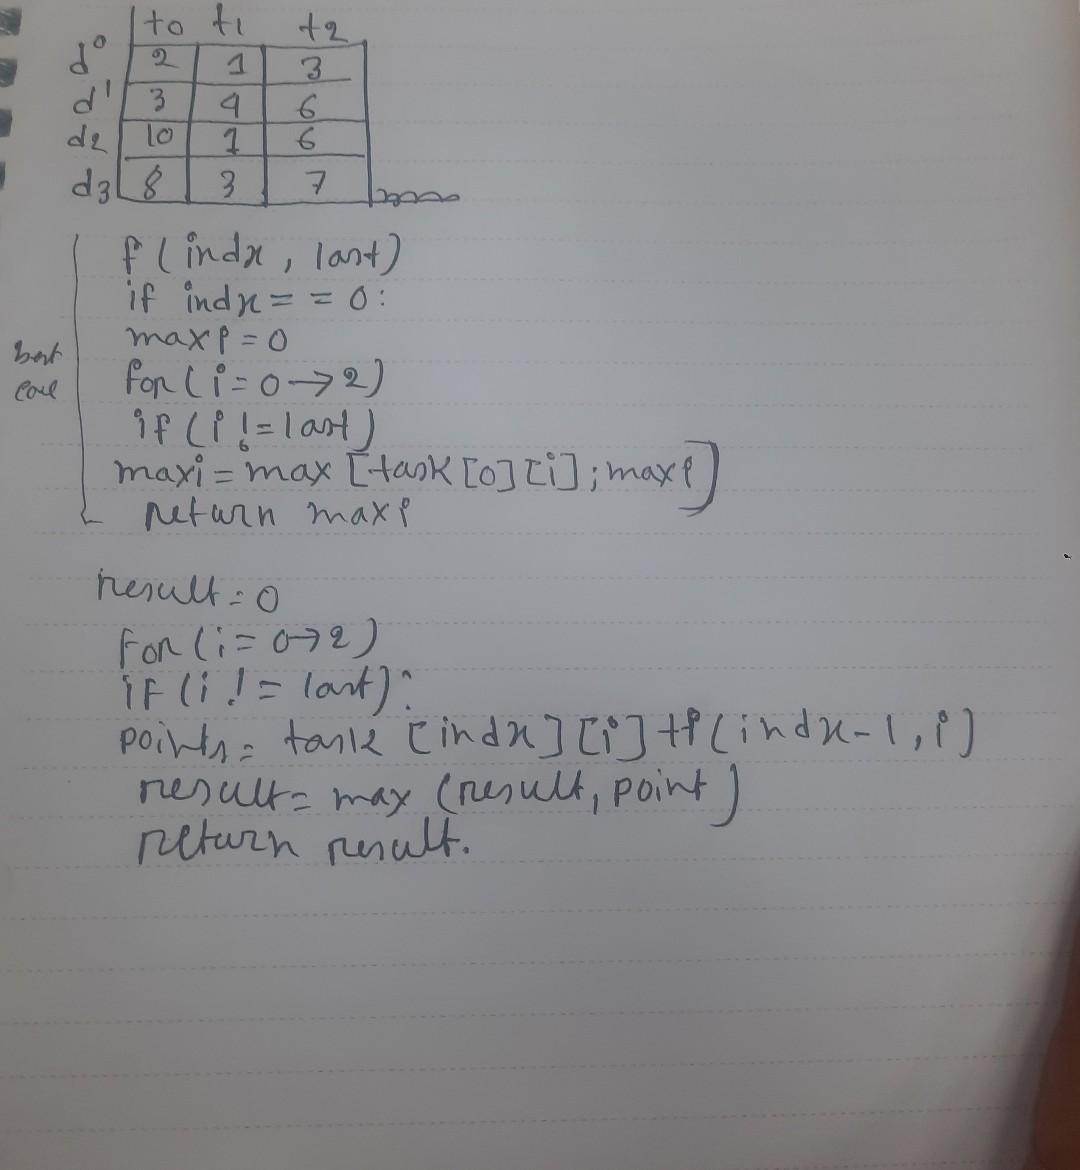 t0 t1 t2
d0 2 1 3
d1 3 4 6
d2 10 1 6
d3 8 3 7
f ( indx , last)
if indx = = 0:
maxi = 0
for ( i = 0 → 2)
if ( i != last)
maxi = max [task [0] [i] ; maxi)
return maxi
result = 0
For ( i = 0 → 2)
if ( i != last) :
points = task [indx] [i] + f ( indx - 1 , i )
result = max (result, point )
return result.